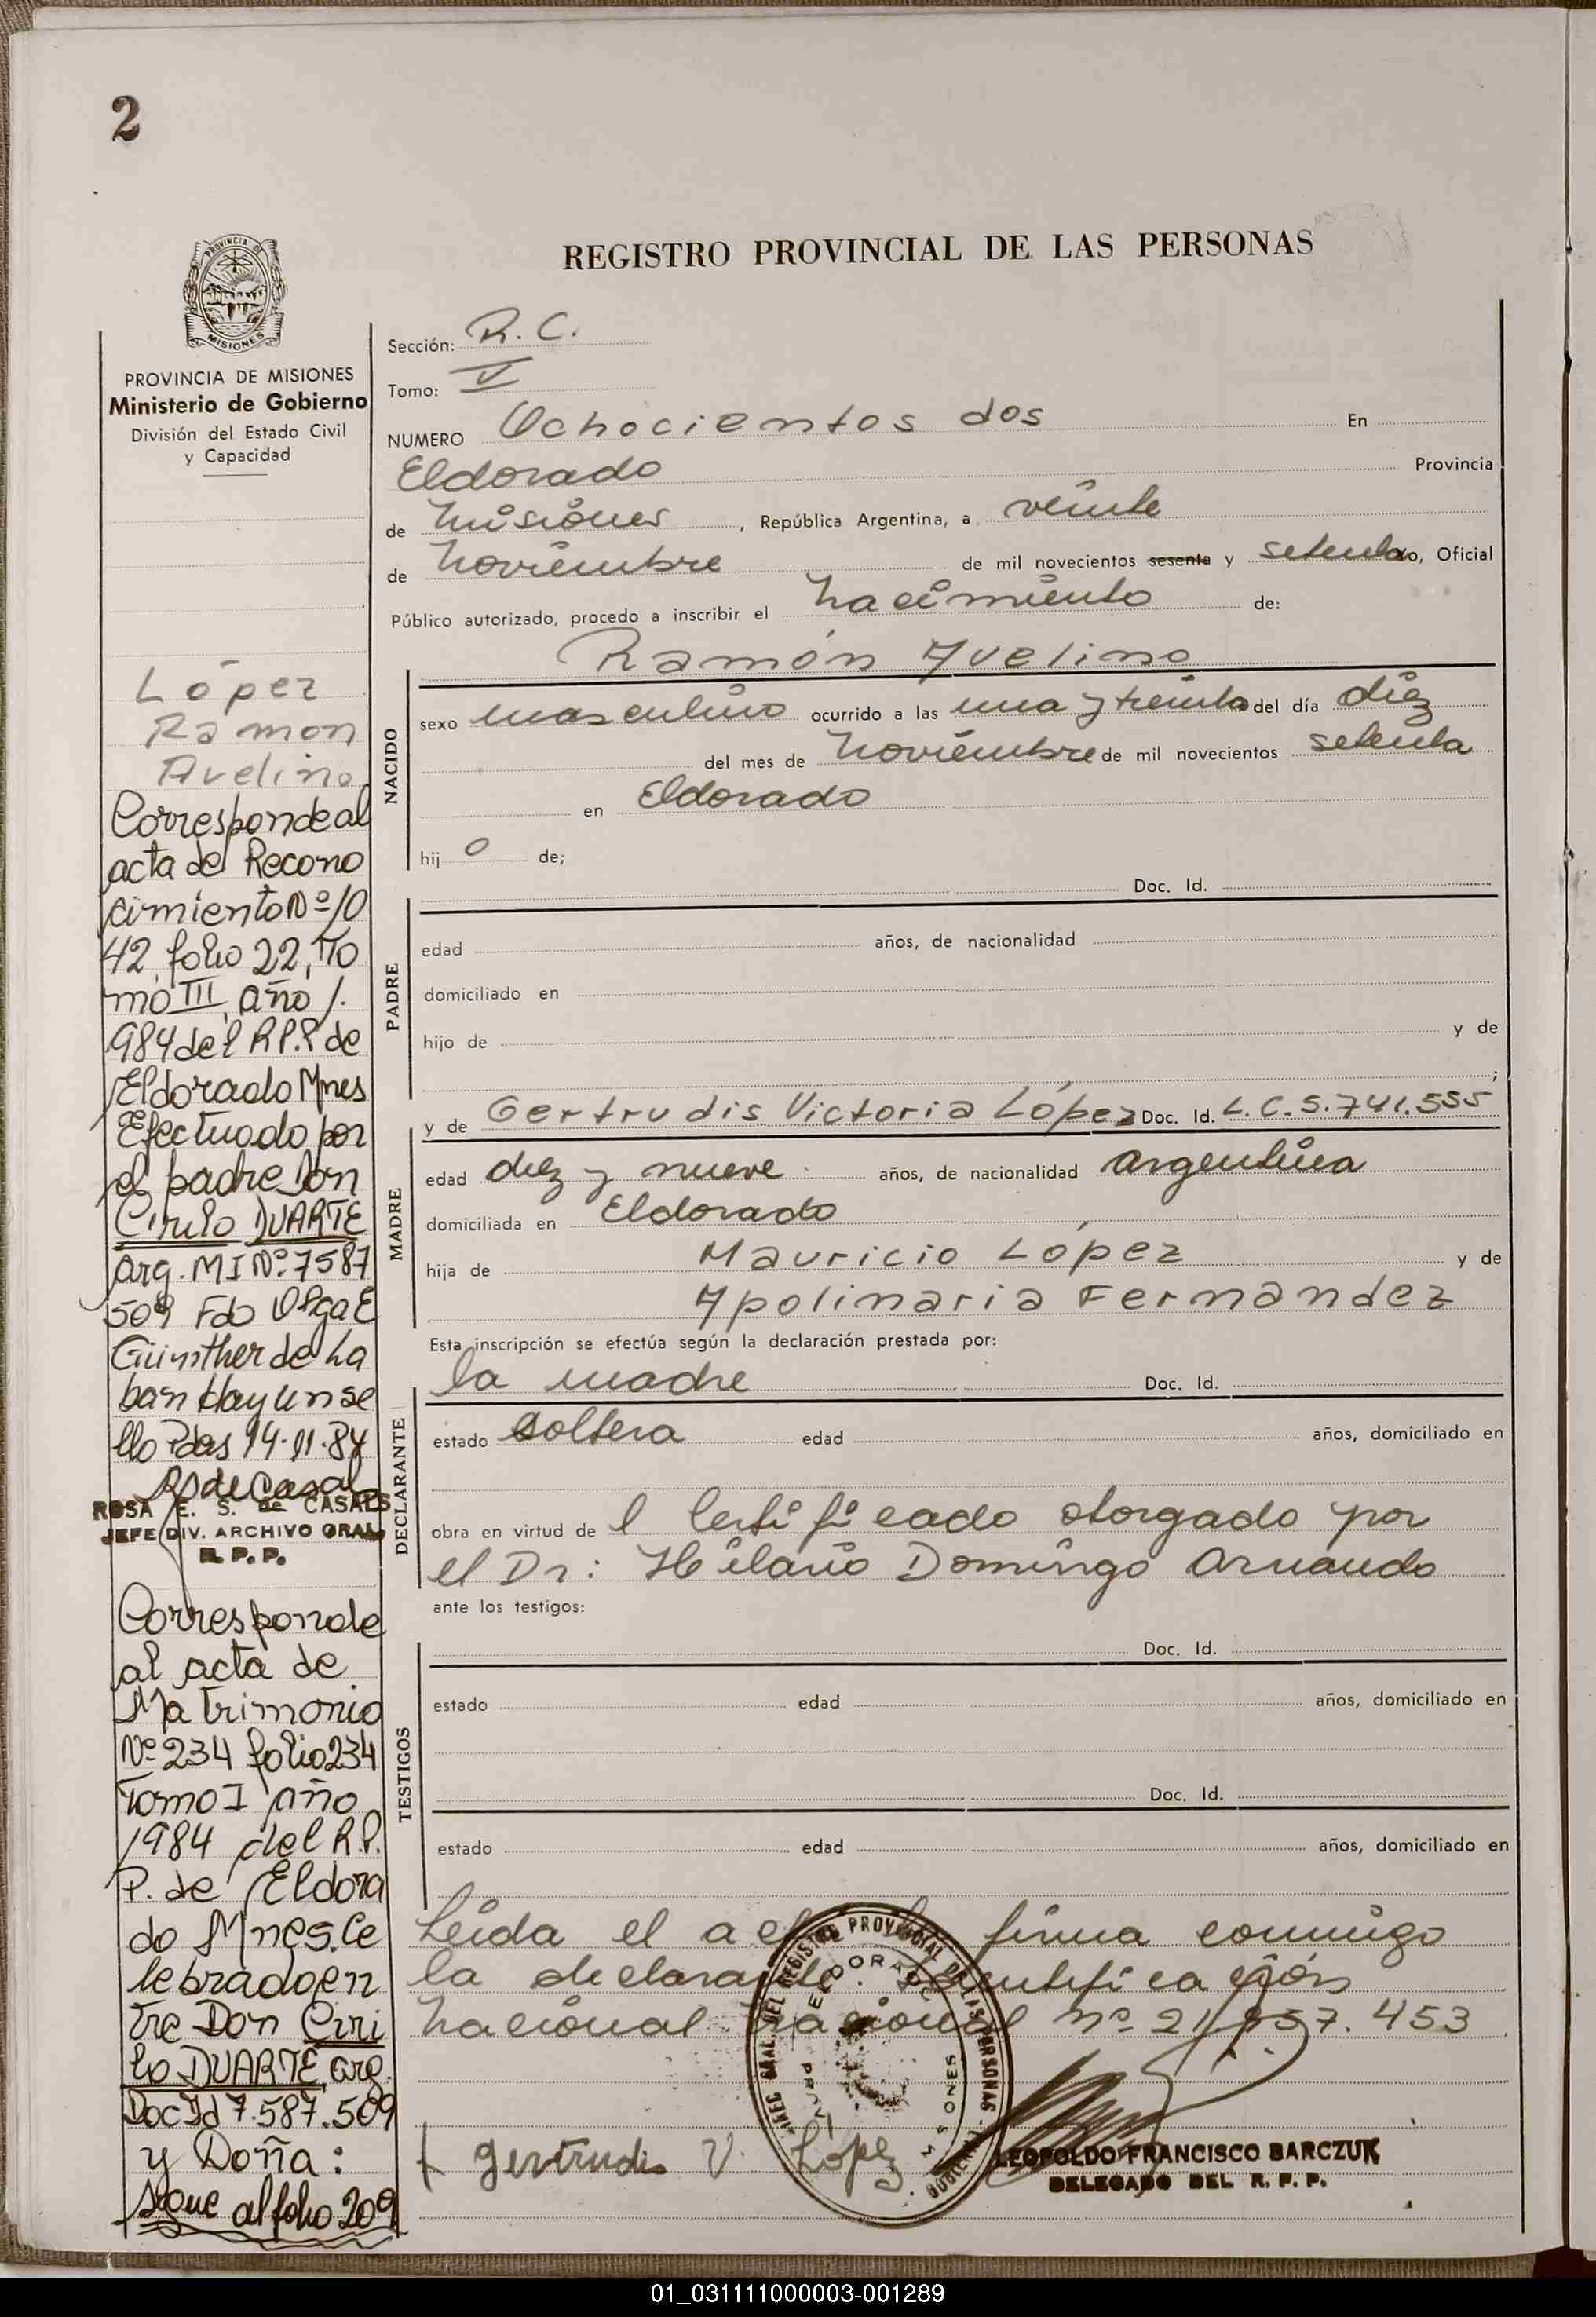 2
REGISTRO PROVINCIAL DE LAS PERSONAS
PROVINCIA DE
MISIONES
PROVINCIA DE MISIONES
Ministerio de Gobierno
División del Estado Civil
y Capacidad
López
Ramon
Avelino
Corresponde al
acta de Recono
cimiento Nº 10
42, folio 22, To
mo III, año 1.
984 del R.P.P. de
Eldorado Mnes
Efectuado por
el padre Don
Cirilo DUARTE
arg. M I Nº 7587
509 Fdo Olga E
Günther de La
ban Hay un se
llo Pdas 14-11-84
RS de Casals
ROSA E. S. de CASALS
JEFE DIV. ARCHIVO GRAL
R. P. P.
Corresponde
al acta de
Matrimonio
Nº 234 folio 234
Tomo I año
1984 del R.P.
P. de Eldora
do Mnes. Ce
lebrado en
tre Don Ciri
lo DUARTE arg.
Doc Id 7.587.509
y Doña:
sigue al folio 209
Sección: R. C.
Tomo: V
NUMERO Ochocientos dos En
Eldorado Provincia
de Misiones , República Argentina, a veinte
de Noviembre de mil novecientos sesenta y setenta yo, Oficial
Público autorizado, procedo a inscribir el Nacimiento de:
Ramón Avelino
NACIDO
sexo masculino ocurrido a las una y treinta del día diez
del mes de Noviembre de mil novecientos setenta
en Eldorado
hij o de;
Doc. Id.
PADRE
edad años, de nacionalidad
domiciliado en
hijo de y de
;
y de Gertrudis Victoria López Doc. Id. L.C. 5.741.555
MADRE
edad diez y nueve años, de nacionalidad argentina
domiciliada en Eldorado
hija de Mauricio López y de
Apolinaria Fernandez
Esta inscripción se efectúa según la declaración prestada por:
la madre Doc. Id.
DECLARANTE
estado soltera edad años, domiciliado en
obra en virtud de l Certificado otorgado por
el Dr: Hilario Domingo Arnaudo
ante los testigos:
Doc. Id.
TESTIGOS
estado edad años, domiciliado en
Doc. Id.
estado edad años, domiciliado en
Leída el acta la firma conmigo
la declarante. Identificación
Nacional Nacional nº 21.857.453
DIREC. GRAL. DEL REGISTRO PROVINCIAL DE LAS PERSONAS
ELDORADO
MISIONES
Gertrudis V. López
LEOPOLDO FRANCISCO BARCZUK
DELEGADO DEL R. P. P.
01_031111000003-001289